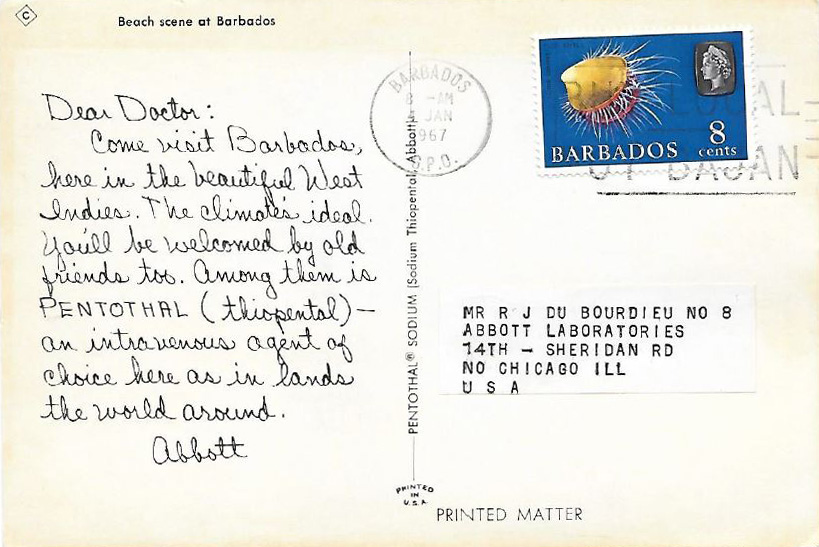 C
Beach scene at Barbados
Dear Doctor:
Come visit Barbados,
here in the beautiful West
Indies. The climate's ideal.
You'll be welcomed by old
friends too. Among them is
PENTOTHAL (thiopental)—
an intravenous agent of
choice here as in lands
the world around.
Abbott
PENTOTHAL® SODIUM (Sodium Thiopental, Abbott)
PRINTED
IN
U.S.A.
BARBADOS
8 -AM
JAN
1967
G.P.O.
BARBADOS
8
cents
LOCAL
BAJAN
MR R J DU BOURDIEU NO 8
ABBOTT LABORATORIES
14TH - SHERIDAN RD
NO CHICAGO ILL
U S A
PRINTED MATTER